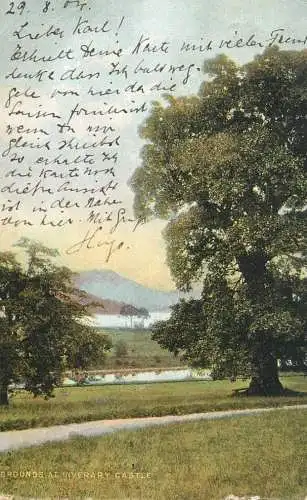 29. 8. 04.
Lieber Karl!
Erhielt Deine Karte mit vieler Freude
denke dass ich bald weg
gehe von hier da die
Saison
wenn Du mir
gleich schreibst
so erhalte ich
die Karte noch
diese Ansicht
ist in der Nähe
von hier. Mit Gruss
Hugo.
GROUNDS AT INVERARY CASTLE